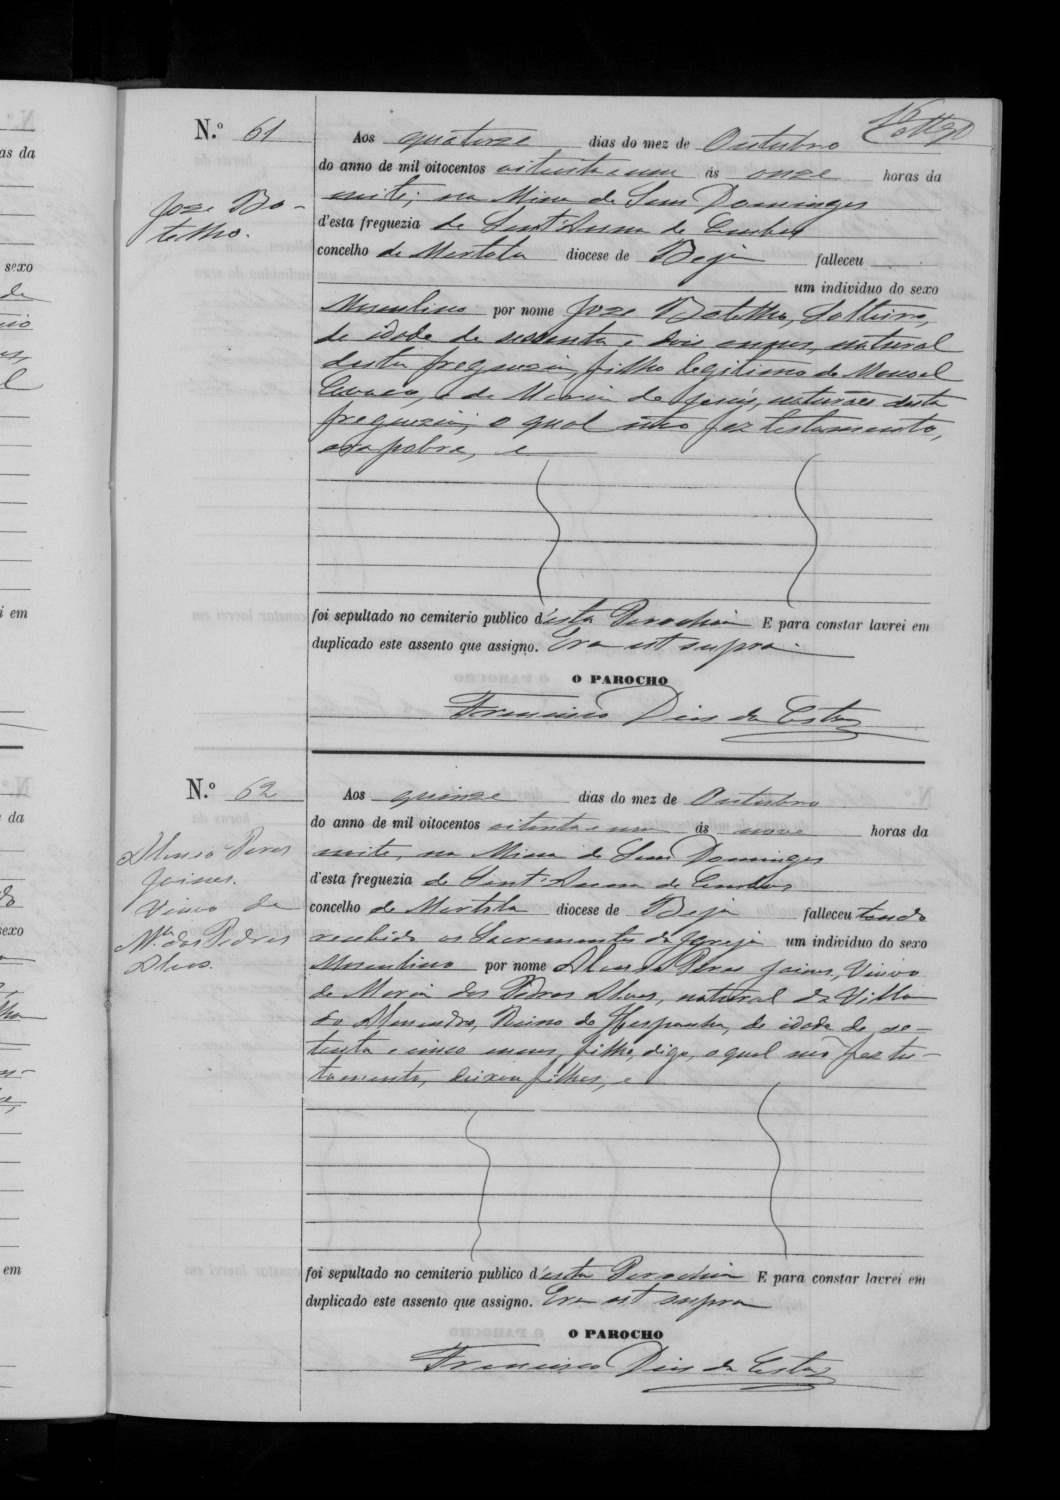 N.º 61
Aos quatorze dias do mez de Outubro
do anno de mil oitocentos oitenta e um ás onze horas da
noite, na Mina de Sam Domingos
d'esta freguezia de Sant'Anna de Cambas
concelho de Mertola diocese de Beja falleceu
um individuo do sexo
Masculino por nome Joze Botelho, Solteiro,
de idade de sessenta e dois annos, natural
desta freguezia, filho legitimo de Manoel
e de Maria de Jesus, naturaes desta
freguezia, o qual não fez testamento,
era pobre, e
foi sepultado no cemiterio publico d'esta Parochia E para constar lavrei em
duplicado este assento que assigno. Era ut supra.
O PAROCHO
Francisco Dias da Costa
Joze Bo-
telho.
N.º 62
Aos quinze dias do mez de Outubro
do anno de mil oitocentos oitenta e um ás nove horas da
noite, na Mina de Sam Domingos
d'esta freguezia de Sant'Anna de Cambas
concelho de Mertola diocese de Beja falleceu tendo
recebido os Sacramentos da Igreja um individuo do sexo
Masculino por nome Alonso Peres Joines, Viuvo
de Maria dos Pedros Alves, natural da Villa
do Almendro, Reino de Hespanha, de idade de se-
tenta e cinco annos, filho, digo, o qual não fez tes-
tamento, deixou filhos, e
foi sepultado no cemiterio publico d'esta Parochia E para constar lavrei em
duplicado este assento que assigno. Era ut supra
O PAROCHO
Francisco Dias da Costa
Alonso Peres
Joines.
Viuvo de
M.ª dos Pedros
Alves.
as da
sexo
de
i em
da
sexo
em